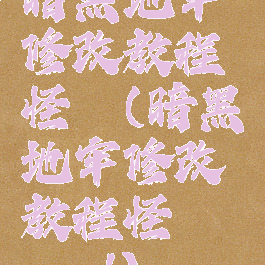 暗黑地牢
修改教程
怪　（暗黑
地牢修改
教程怪
）